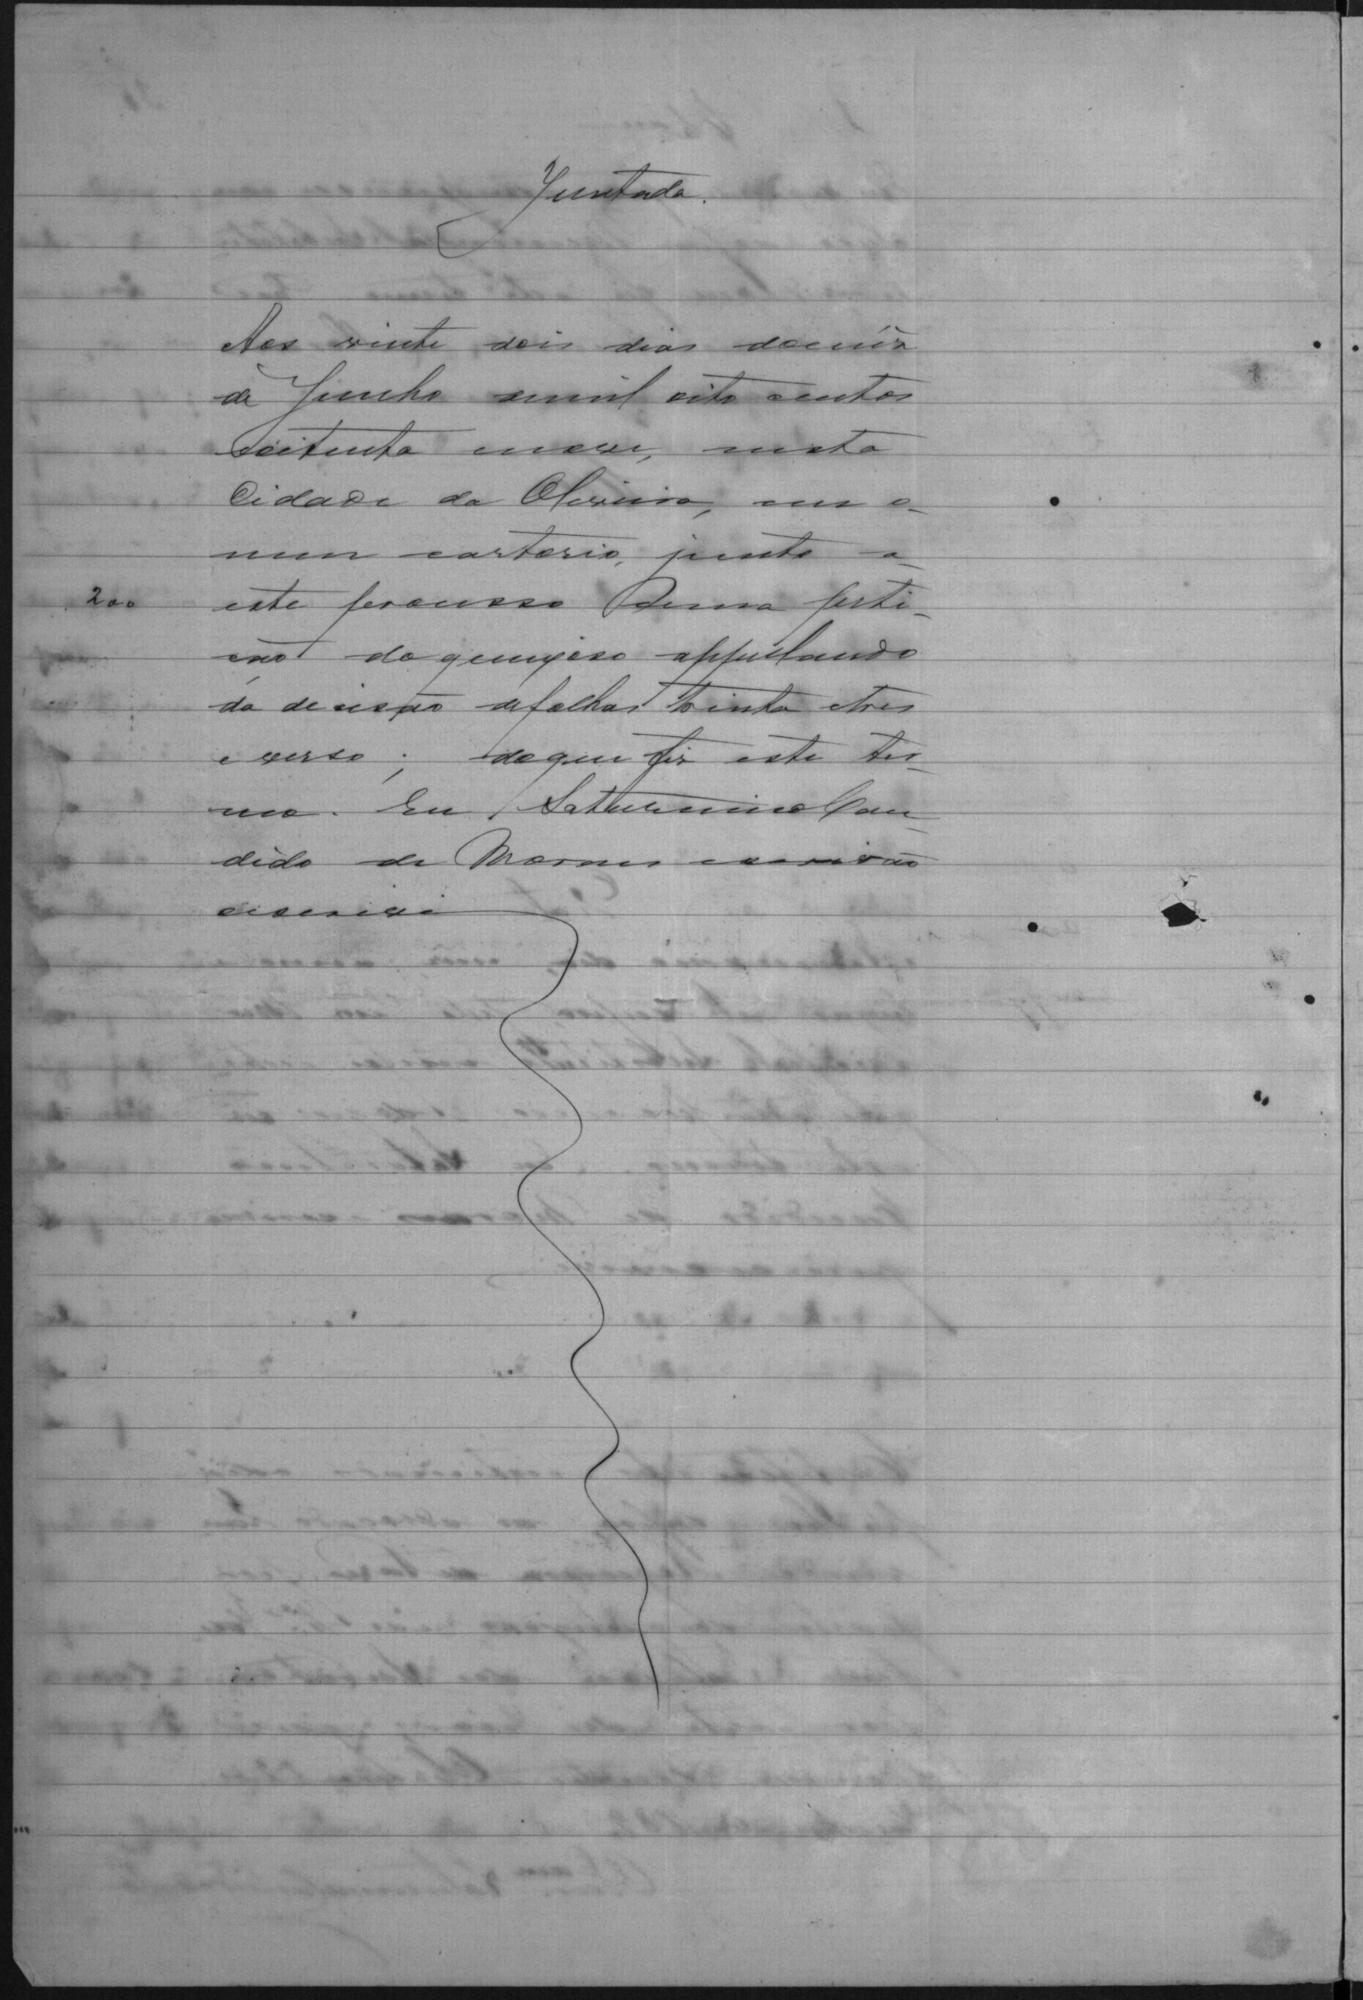 Juntada.
Aos vinte dois dias do mêz
de Junho de mil oito centos
oitenta e nove, nesta
Cidade da Oliveira, em o
meu cartorio, junto a
200 este processo uma peti-
ção do queixoso appellando
da decisão de folhas trinta e tres
e verso; do que fiz este ter-
mo. Eu Saturnino Can-
dido de Moraes escrivão
escrevi